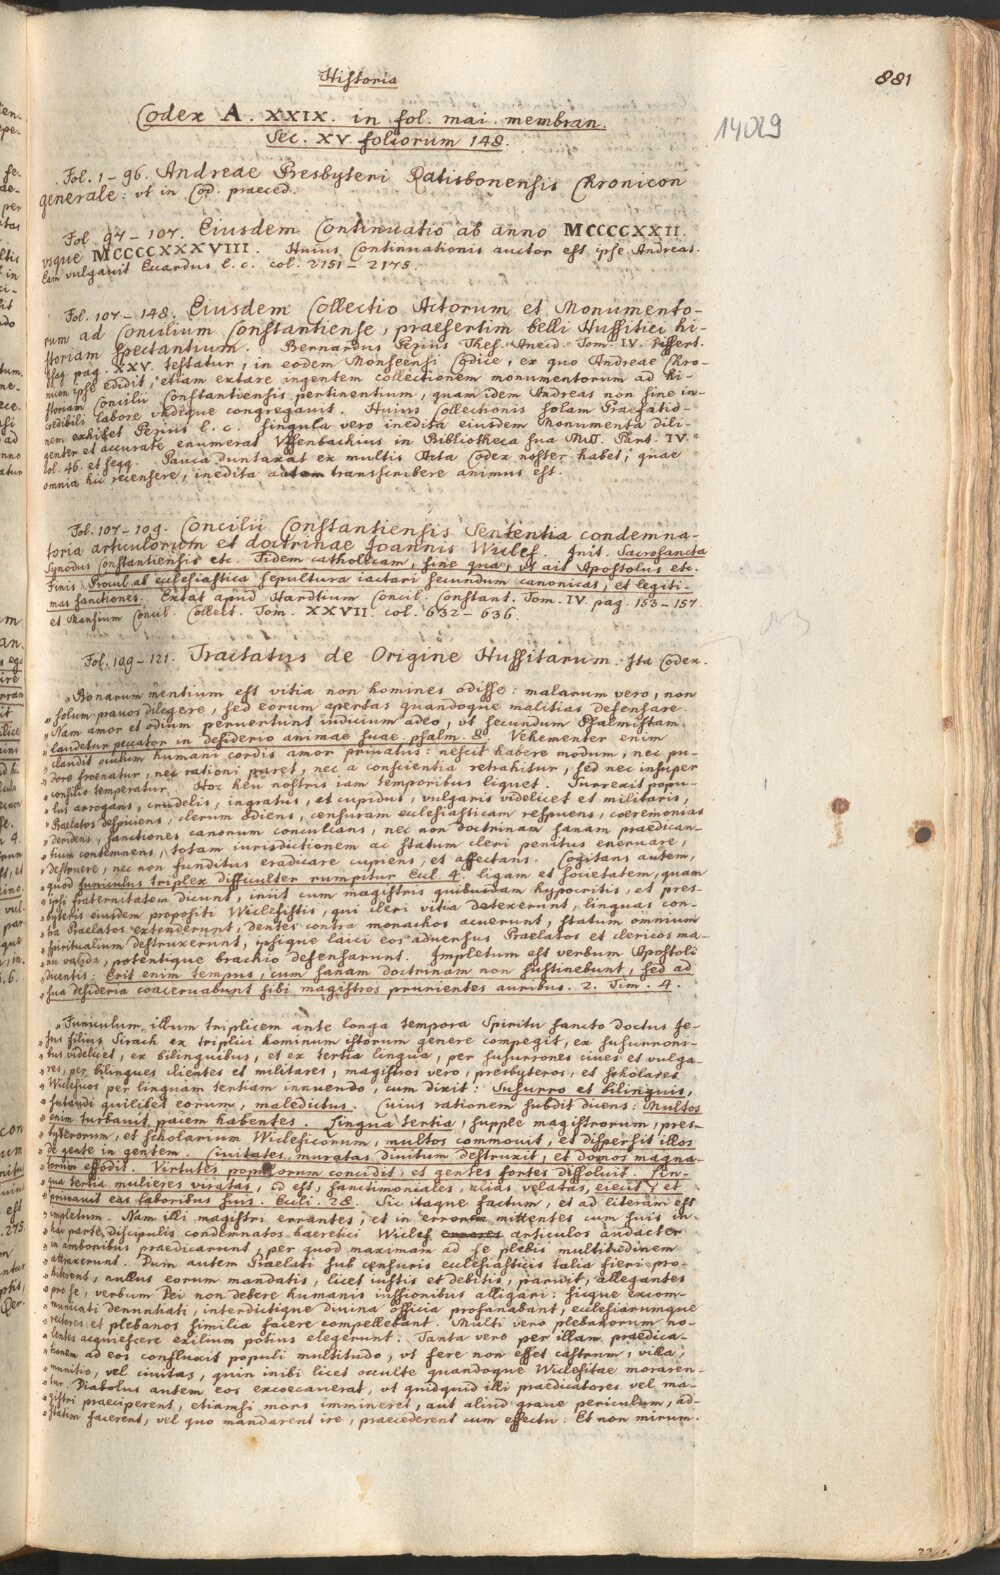 Historia
881
Codex A. XXIX. in fol. mai. membran.
Sec. XV. foliorum 148.
14029
Fol. 1-96. Andreae Presbyteri Ratisbonensis Chronicon
generale: vt in Cod. praeced.
Fol. 97-107. Eiusdem Continuatio ab anno MCCCCXXII.
vsque MCCCCXXXVIII. Huius Continuationis auctor est ipse Andreas.
Eam vulgauit Eccardus l. c. col. 2151-2175.
Fol. 107-148. Eiusdem Collectio Actorum et Monumento-
rum ad Concilium Constantiense, praesertim belli Hussitici hi-
storiam spectantium. Bernardus Pezius Thes. Anecd. Tom. IV. Dissert.
Isag. pag. XXV. testatur, in eodem Monseensi Codice, ex quo Andreae Chro-
nicon ipse edidit, etiam extare ingentem collectionem monumentorum ad hi-
storiam Concilii Constantiensis pertinentium, quam idem Andreas non sine in-
credibili labore vndique congregauit. Huius Collectionis solam Praefatio-
nem exhibet Pezius l. c. singula vero inedita eiusdem Monumenta dili-
genter et accurate enumerat Vffenbachius in Bibliotheca sua MSS. Pars. IV.
col. 46. et seqq. Pauca duntaxat ex multis Acta Codex noster habet; quae
omnia hic recensere, inedita autem transcribere animus est.
Fol. 107-109. Concilii Constantiensis Sententia condemna-
toria articulorum et doctrinae Joannis Wiclef. Init. Sacrosancta
Synodus Constantiensis etc. Fidem catholicam, sine qua, vt ait Apostolus etc.
Finis: Procul ab ecclesiastica sepultura iactari secundum canonicas, et legiti-
mas sanctiones. Extat apud Hardtium Concil. Constant. Tom. IV. pag. 153-157.
et Mansium Concil. Collect. Tom. XXVII. col. 632-636.
Fol. 109-121. Tractatus de Origine Hussitarum. Ita Codex.
„Bonarum mentium est vitia non homines odisse: malarum vero, non
„solum prauos diligere, sed eorum apertas quandoque malitias defensare.
„Nam amor et odium peruertunt iudicium adeo, vt secundum Psalmistam
„laudetur peccator in desiderio animae suae. psalm. 8. Vehementer enim
„claudit oculum humani cordis amor priuatus: nescit habere modum, nec pu-
„dore froenatur, nec rationi paret, nec a conscientia retrahitur, sed nec insuper
„consilio temperatur. Hoc heu nostris iam temporibus liquet. Surrexit popu-
„lus arrogans, crudelis, ingratus, et cupidus, vulgaris videlicet et militaris,
„Praelatos despiciens, clerum odiens, censuram ecclesiasticam respuens, coeremonias
„deridens, sanctiones canonum conculcans, nec non doctrinam sanam praedican-
„tium contemnens, totam iurisdictionem ac statum cleri penitus eneruare,
„destruere, nec non funditus eradicare cupiens, et affectans. Cogitans autem,
„quod funiculus triplex difficulter rumpitur Eccl. 4. ligam et societatem, quam
„ipsi fraternitatem dicunt, iniit cum magistris quibusdam hypocritis, et pres-
„byteris eiusdem propositi Wiclefistis, qui cleri vitia detexerunt, linguas con-
„tra Praelatos extenderunt, dentes contra monachos acuerunt, statum omnium
„spiritualium destruxerunt, ipsique laici eos aduersus Praelatos et clericos ma-
„nu valida, potentique brachio defensarunt. Impletum est verbum Apostoli
„dicentis: Erit enim tempus, cum sanam doctrinam non sustinebunt, sed ad
„sua desideria coaceruabunt sibi magistros prurientes auribus. 2. Tim. 4.
„Funiculum illum triplicem ante longa tempora Spiritu sancto doctus Je-
„sus filius Sirach ex triplici hominum istorum genere compegit, ex susurroni-
„bus videlicet, ex bilinguibus, et ex tertia lingua, per susurrones ciues et vulga-
„res, per bilingues clientes et militares, magistros vero, presbyteros, et scholares
„Wiclesicos per linguam tertiam innuendo, cum dixit: Susurro et bilinguis,
„putandi quilibet eorum, maledictus. Cuius rationem subdit dicens: Multos
„enim turbauit pacem habentes. Lingua tertia, supple magistrorum, pres-
„byterorum, et scholarium Wiclesicorum, multos commouit, et dispersit illos
„de gente in gentem. Ciuitates muratas diuitum destruxit, et domos magna-
„torum effodit. Virtutes populorum concidit, et gentes fortes dissoluit. Lin-
„gua tertia mulieres viratas, id est, sanctimoniales, alias velatas, eiecit, et
„priuauit eas laboribus suis. Eccli. 28. Sic itaque factum, et ad literam est
„impletum. Nam illi magistri errantes, et in errorem mittentes cum suis in
„hac parte discipulis condemnatos haeretici Wiclef articulos audacter
„in ambonibus praedicarunt, per quod maximam ad se plebis multitudinem
„attraxerunt. Dum autem Praelati sub censuris ecclesiasticis talia fieri pro-
„hiberent, nullus eorum mandatis, licet iustis et debitis, paruit, allegantes
„pro se, verbum Dei non debere humanis iussionibus alligari: sicque excom-
„municati denuntiati, interdictique diuina officia profanabant, ecclesiarumque
„rectores et plebanos similia facere compellebant. Multi vero plebanorum no-
„lentes acquiescere exilium potius elegerunt. Tanta vero per illam praedica-
„tionem ad eos confluxit populi multitudo, vt fere non esset castrum, villa,
„munitio, vel ciuitas, quin inibi licet occulte quandoque Wiclefitae moraren-
„tur. Diabolus autem eos excoecauerat, vt quidquid illi praedicatores vel ma-
„gistri praeciperent, etiamsi mors immineret, aut aliud graue periculum, ad-
„statim facerent, vel quo mandarent ire, praecederent cum effectu. Et non mirum.